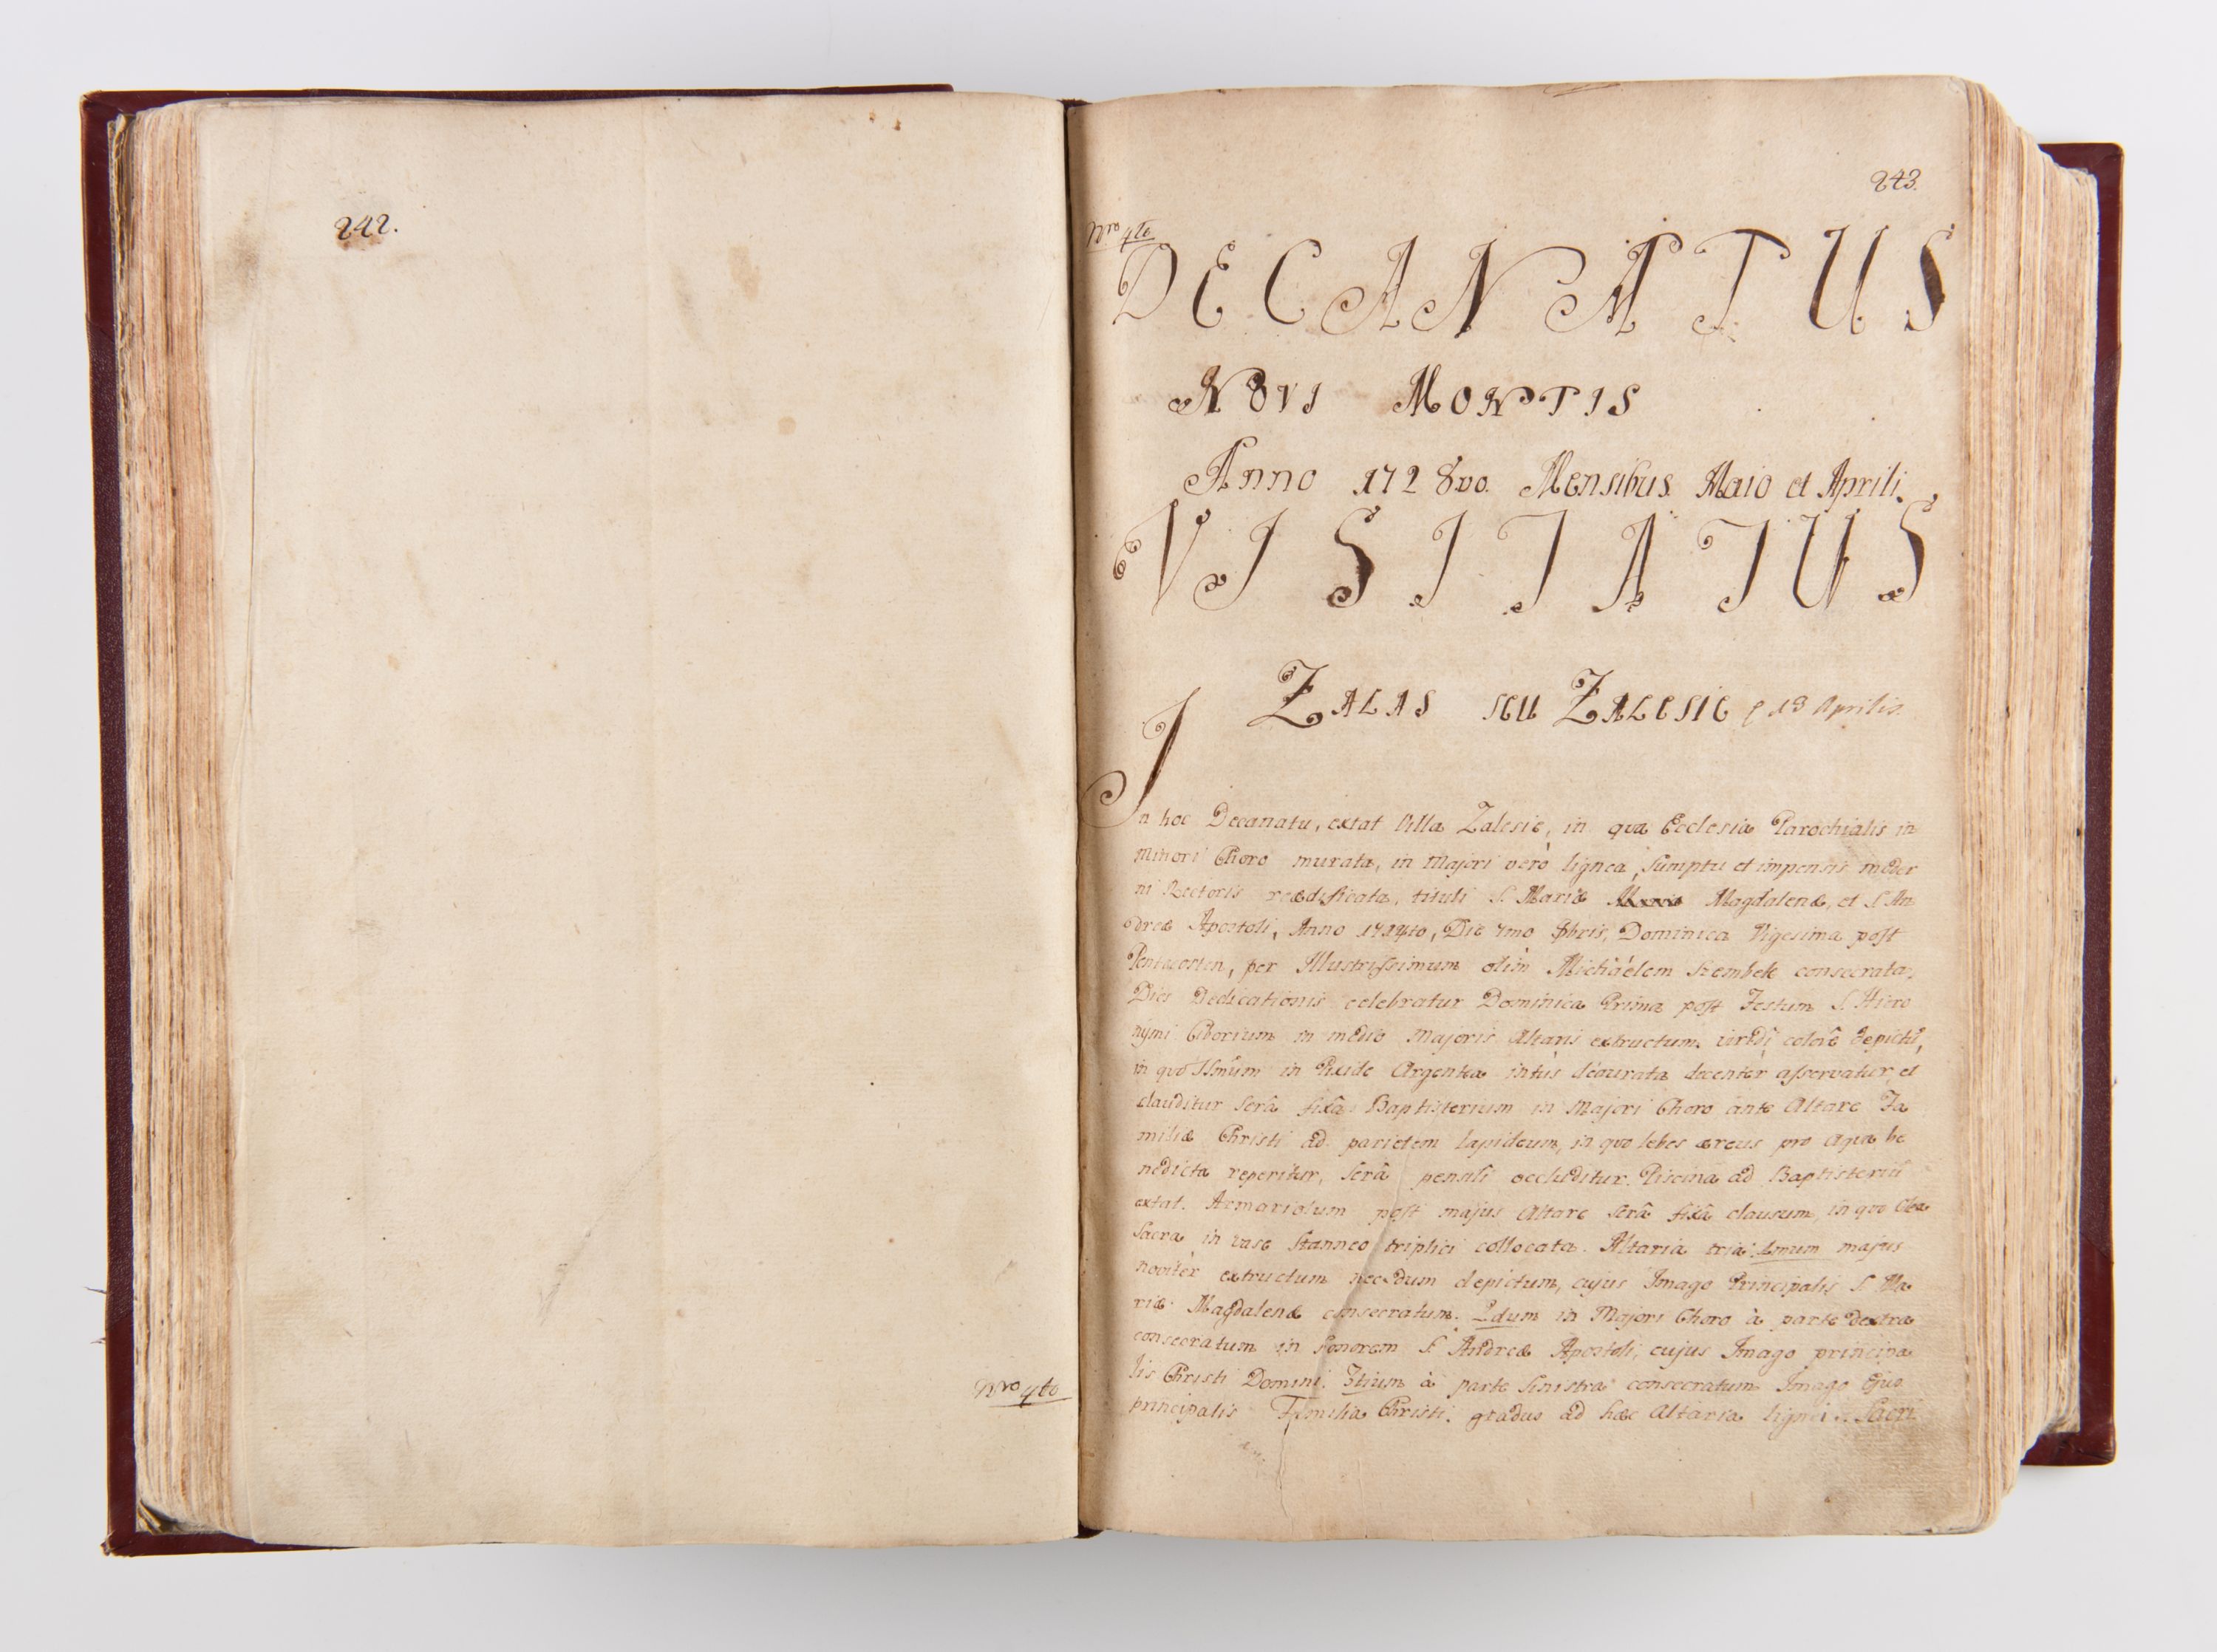 242.
Nro 4to
243.
Nro 4to
DECANATUS
NOVI MONTIS
Anno 1728vo. Mensibus Maio et Aprili
VISITATUS
ZALAS seu ZALESIE 13 Aprilis.
In hoc Decanatu, extat Villa Zalesie, in qua Ecclesia Parochialis in
Minori Choro murata, in Majori verò lignea, Sumptu et impensis moder
ni Rectoris reædificata, tituli S. Mariæ Magdalenæ, et S. An
dreæ Apostoli, Anno 1714to, Die 7mo 8bris, Dominica Vigesima post
Pentecosten, per Illustrissimum olim Michaëlem Szembek consecrata.
Dies Dedicationis celebratur Dominica Prima post Festum S. Hiero
nymi Ciborium in medio Majoris Altaris extructum viridi colore depictū,
in quo SSmum in Pixide Argentea intùs deaurata decenter asservatur, et
clauditur Serâ fixâ. Baptisterium in Majori Choro ante Altare Fa
miliæ Christi ad parietem lapideum, in quo lebes æreus pro Aqua be
nedicta reperitur, Serâ pensili occluditur. Piscina ad Baptisteriū
extat. Armariolum post majus Altare Serâ fixâ clausum, in quo Olea
Sacra in vase Stanneo triplici collocata. Altaria tria: 1mum majus
noviter extructum necdum depictum, cujus Imago Principalis S. Ma
riæ Magdalenæ consecratum. 2dum in Majori Choro à parte dextra
consecratum in honorem S. Andreæ Apostoli, cujus Imago principa
lis Christi Domini. 3tium à parte Sinistra consecratum Imago Ejus
principalis Familia Christi. gradus ad hæc Altaria lignei. Sacri